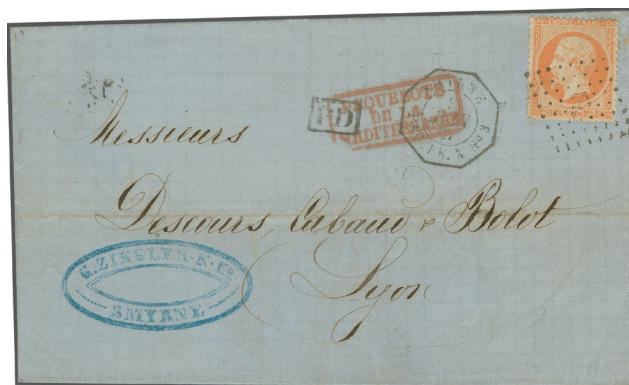 EMPIRE FRANC
PD
PAQUEBOTS
DE LA
MÉDITERRANÉE
Messieurs
Descours, Cabaud & Bolot
Lyon
G. ZIEGLER & Co
SMYRNE